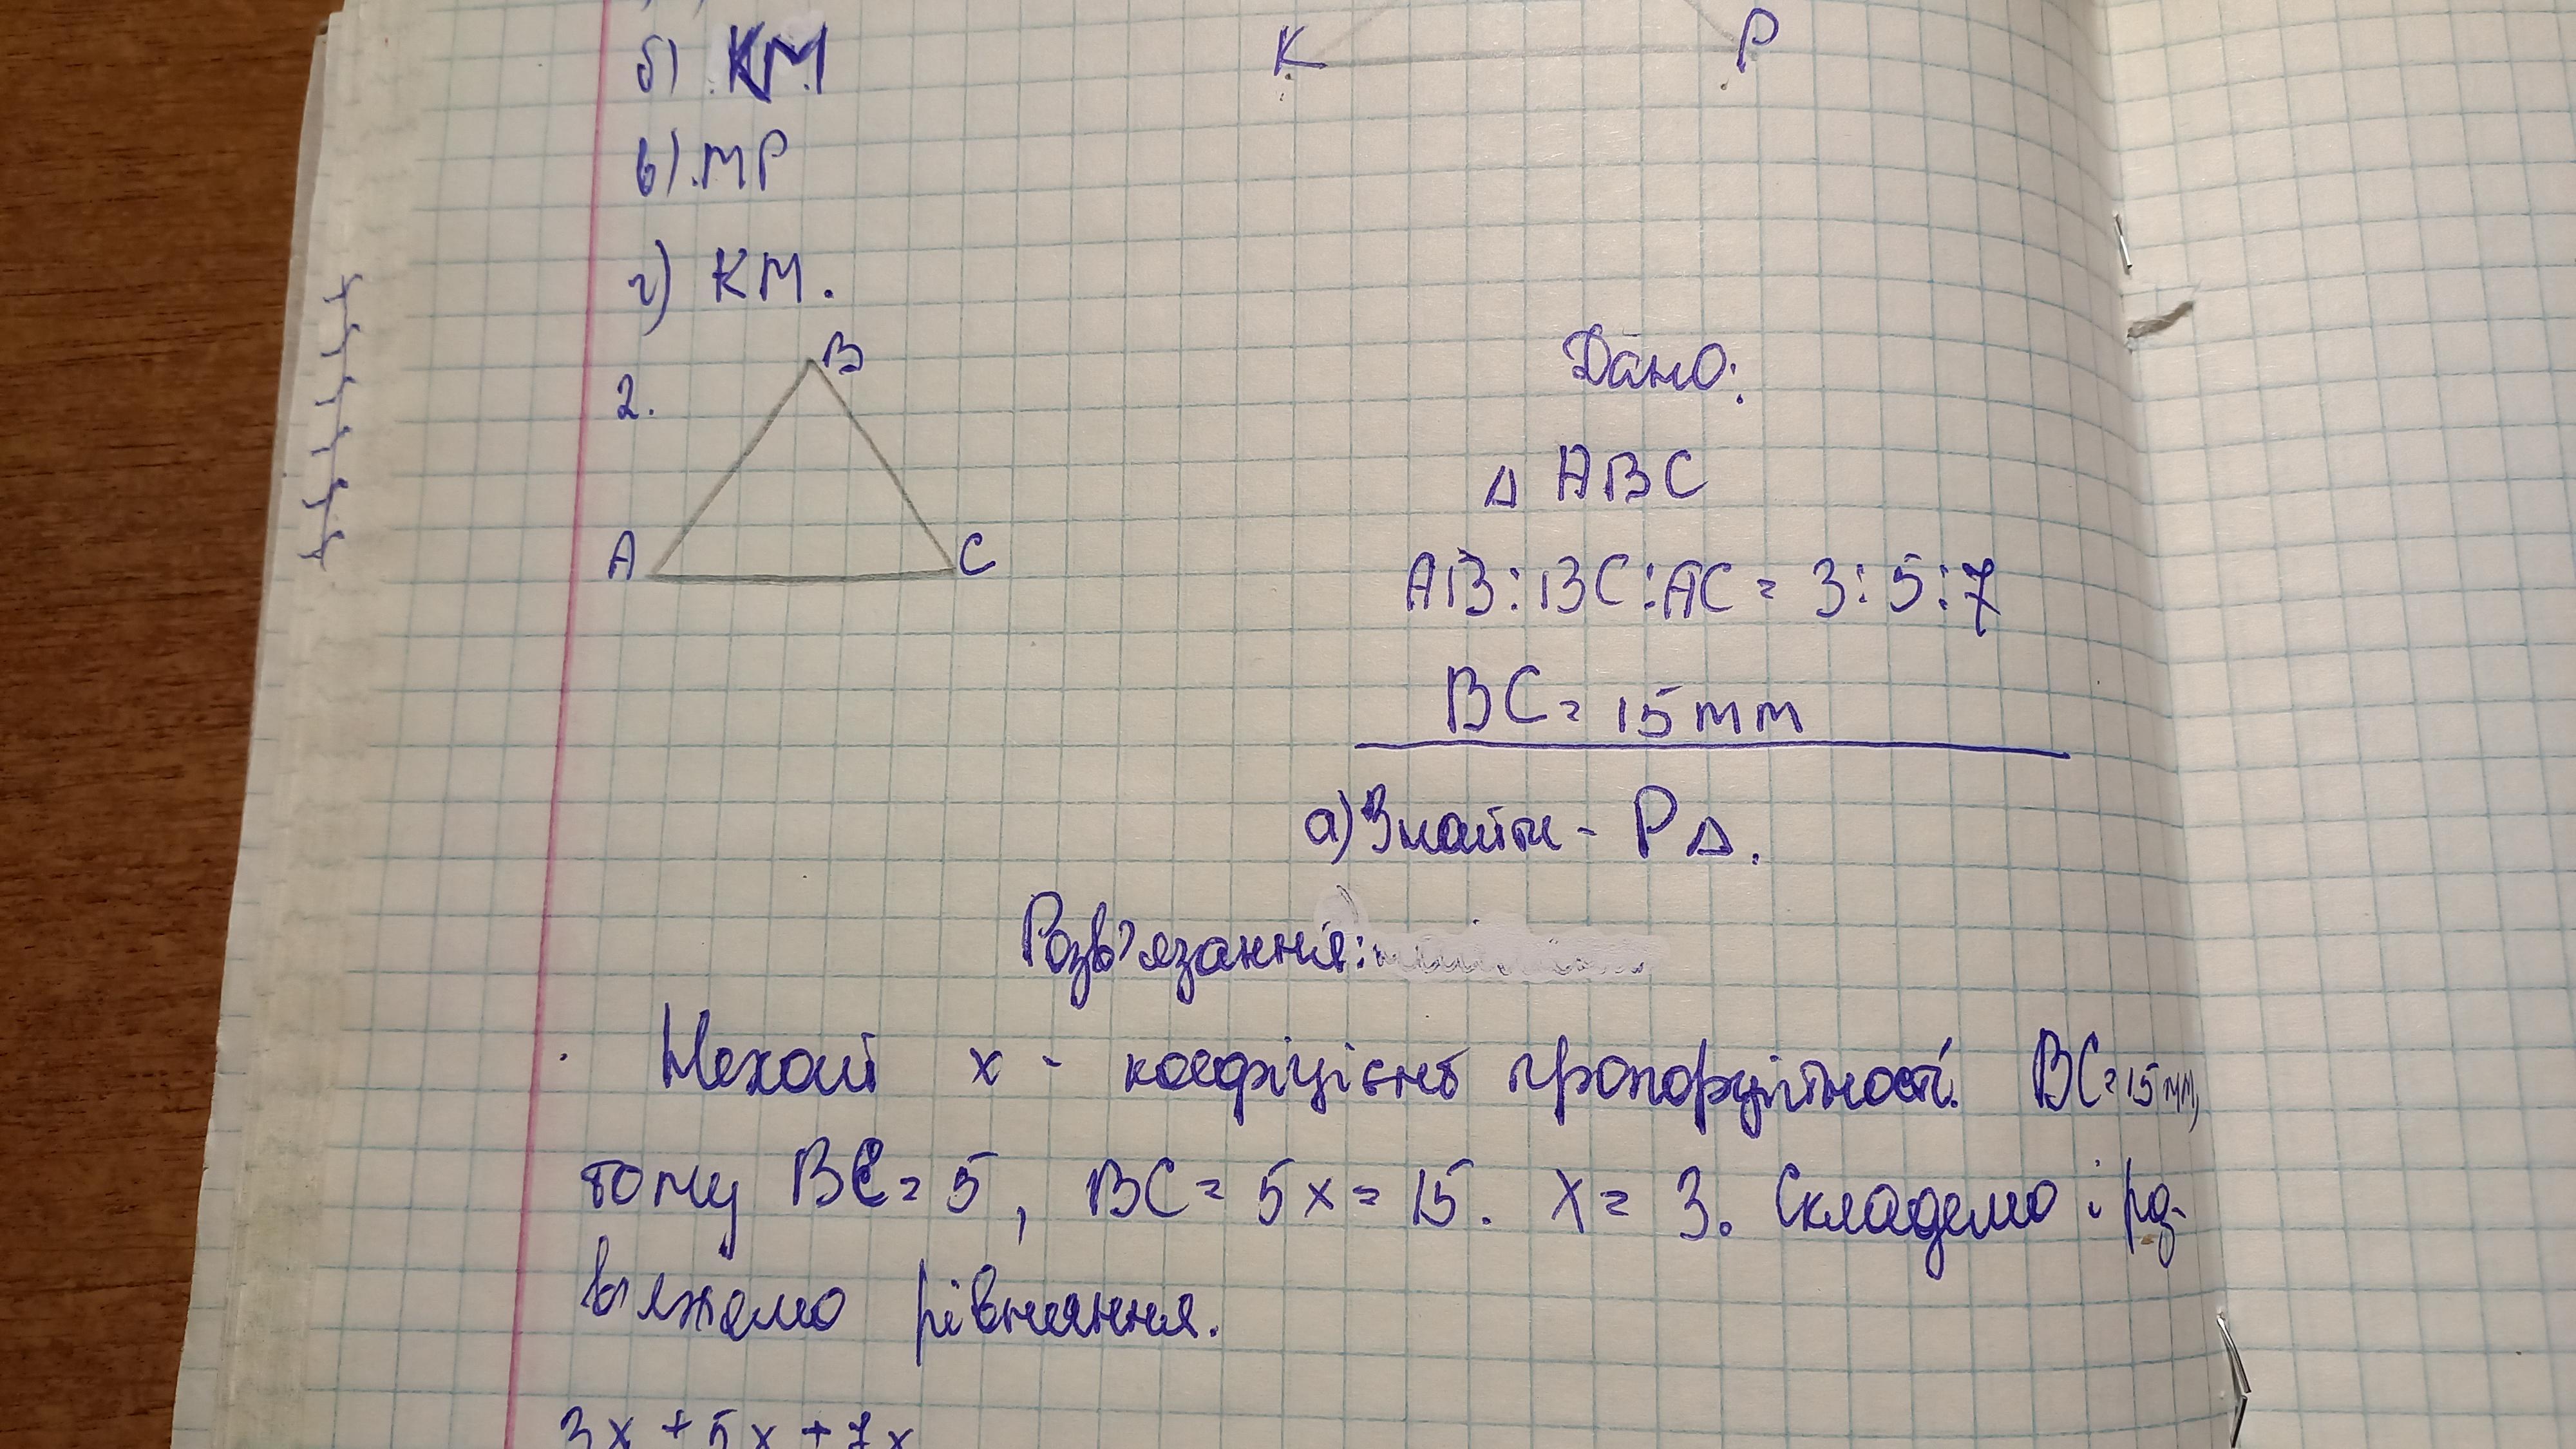 K P
б) KM
в) MP
г) KM.
2.
B
A C
Дано:
Δ ABC
AB:BC:AC = 3:5:7
BC = 15 mm
а) Знайти - P Δ.
Розв'язання:
Нехай x - коефіцієнт пропорційності. BC = 15 мм,
тому BC = 5, BC = 5x = 15. X = 3. Складемо і роз-
в'яжемо рівняння.
3x + 5x + 7x